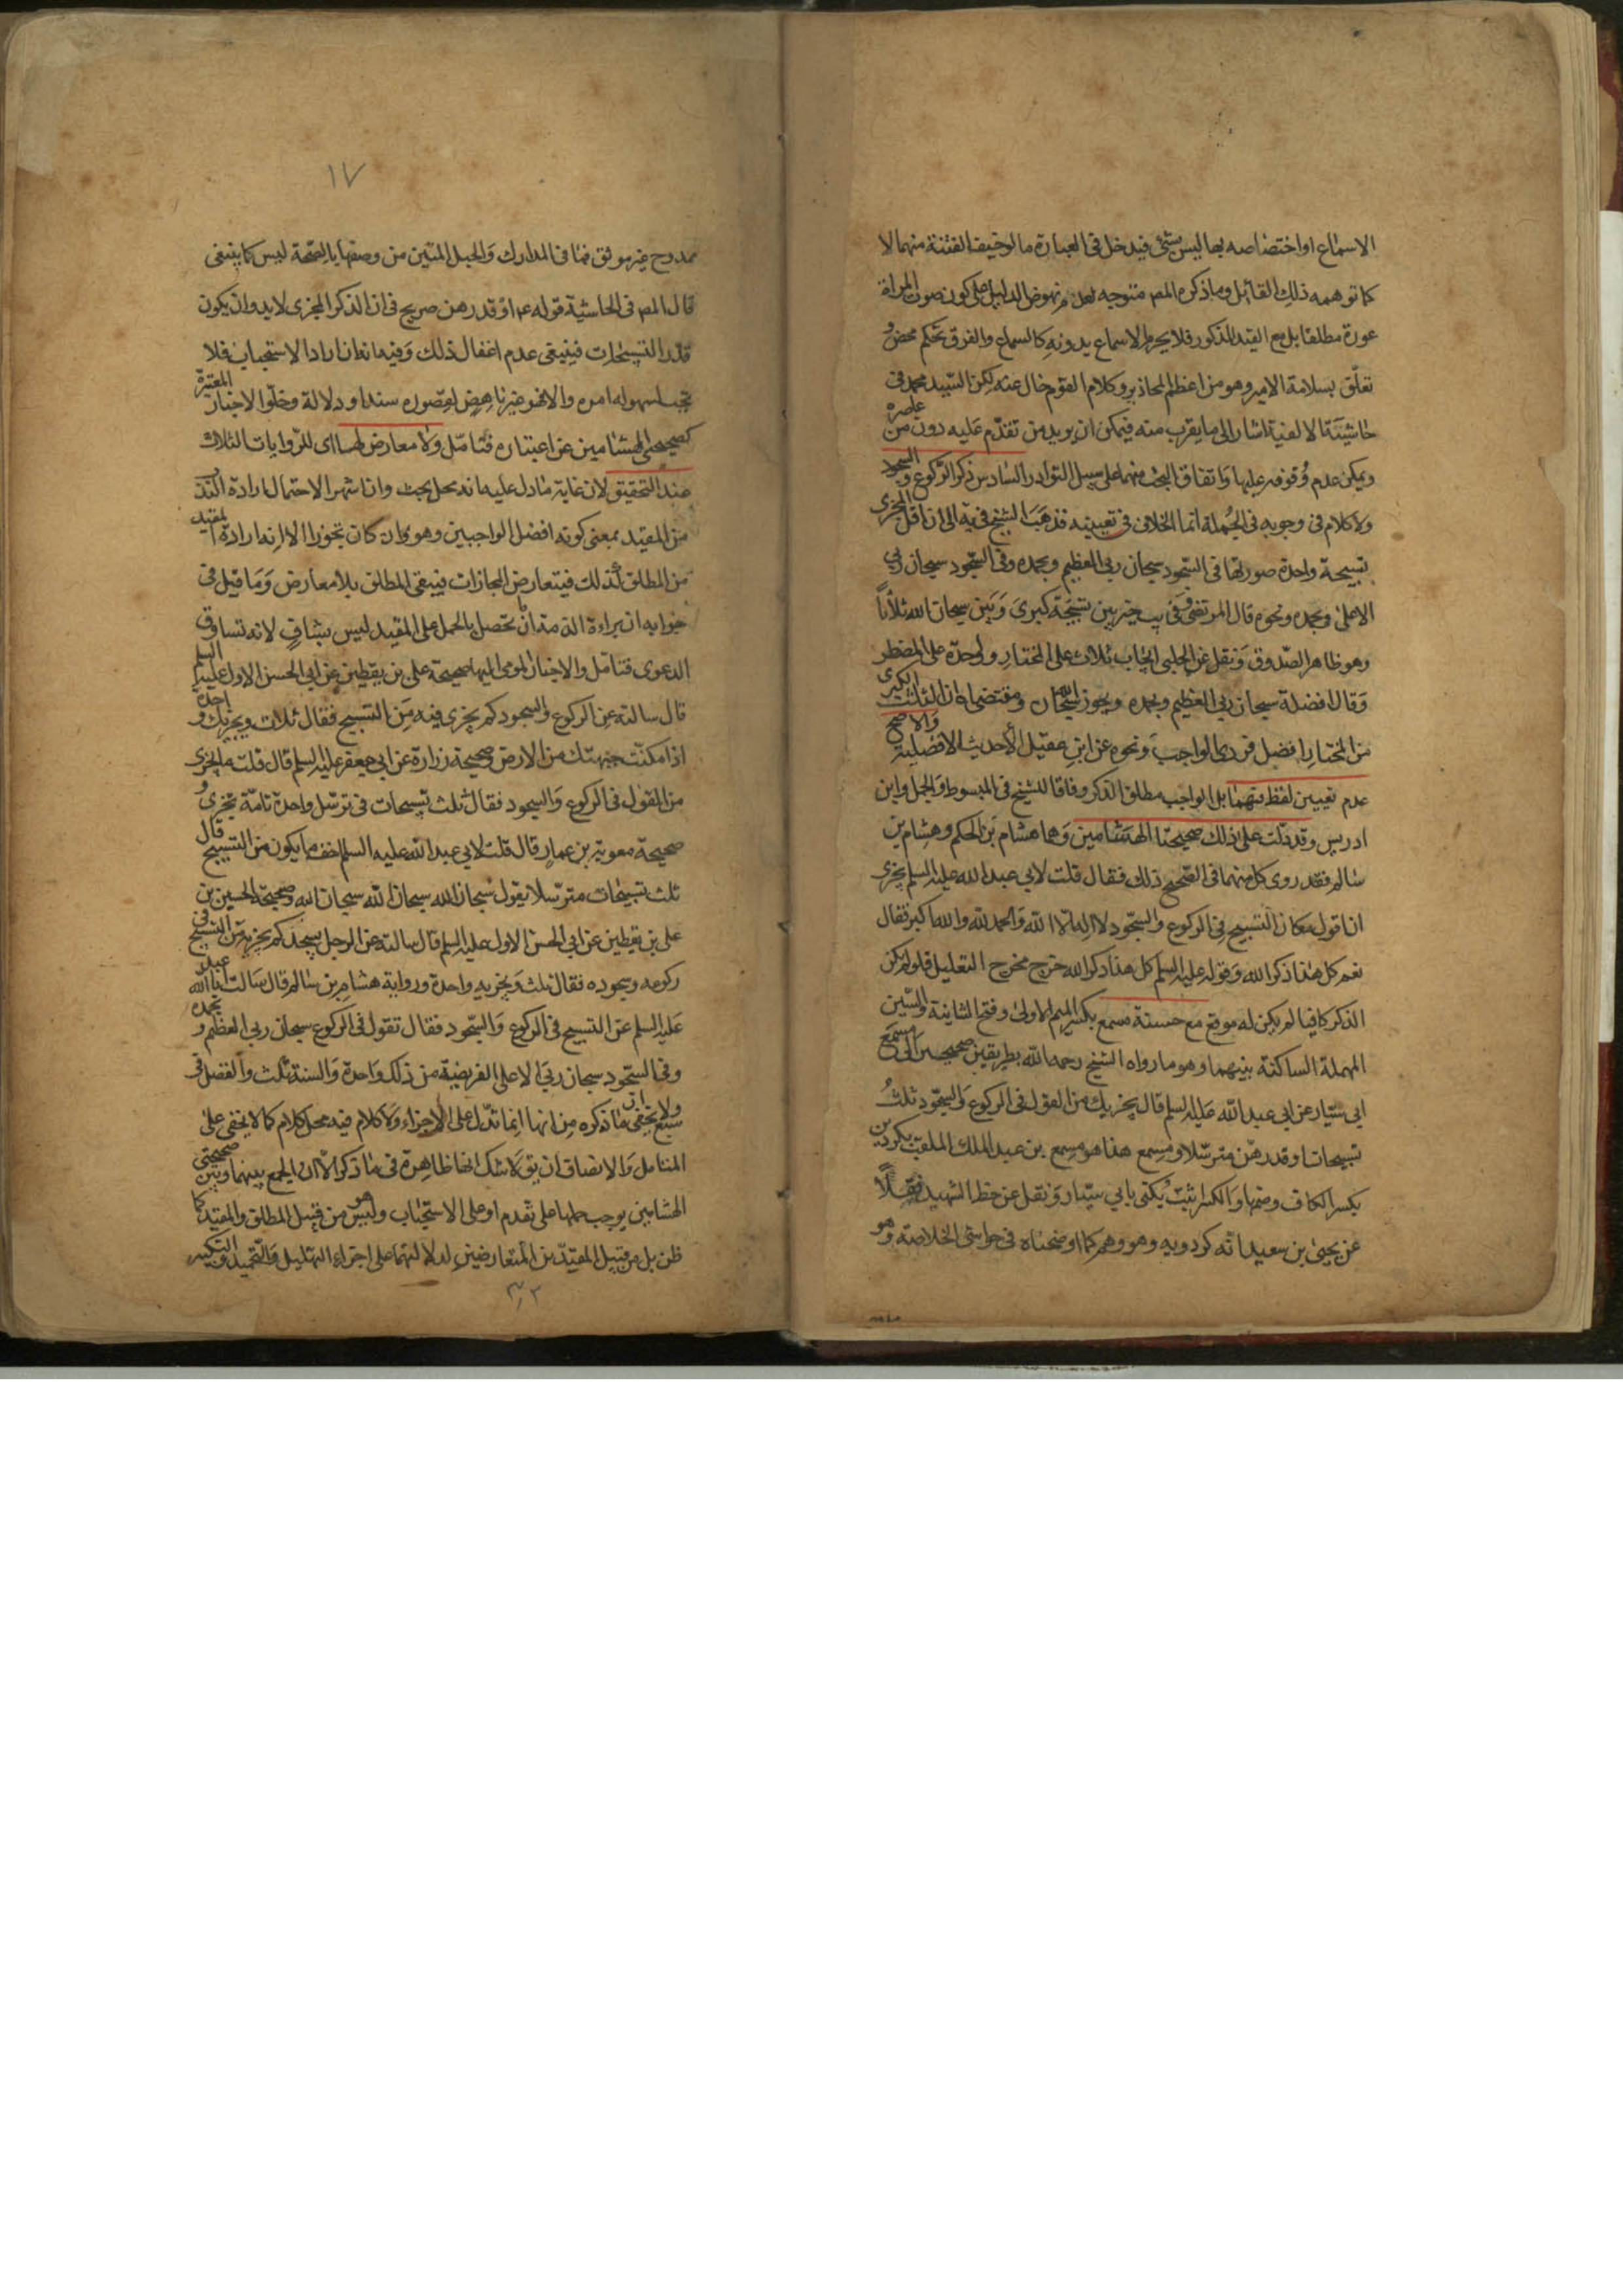 الاسماع او اختصاصه بها ليس بشئ فيدخل في العبارة ما لو خيف الفتنة منهما لا
كما توهمه ذلك القائل وما ذكره المص متوجه لعدم نهوض الدليل على كون صوت المراة
عورة مطلقا بل مع القيد المذكور فلا يحرم الاسماع بدونه كالسماع والفرق تحكم محض و
تعلق بسلامة الامير وهو من اعظم المحاذير وكلام القوم خال عنه لكن السيد محمد في
حاشية الالفية اشار الى ما يقرب منه فيمكن ان يريد من تقدم عليه دون من عاصره
ويمكن عدم وقوفه عليها واتفاق البحث منهما على سبيل التوادر السادس ذكر الركوع والسجود
ولا كلام في وجوبه في الجملة انما الخلاف في تعيينه فذهب الشيخ في يه الى ان اقل المجزي
تسبيحة واحدة صورتها في السجود سبحان ربي العظيم وبحمده وفي السجود سبحان ربي
الاعلى وبحمده ونحوه قال المرتضى وفي يب خير بين تسبيحة كبرى وبين سبحان الله ثلاثا
وهو ظاهر الصدوق ونقل عن الحلبي ايجاب ثلاث على المختار وواحدة على المضطر
وقال افضله سبحان ربي العظيم وبحمده ويجوز سبحان الله ومقتضاه ان الثلث الكبرى
من المختار افضل فردي الواجب ونحوه عن ابن عقيل لأحاديث الافضلية والاصح
عدم تعيين لفظ منهما بل الواجب مطلق الذكر وفاقا للشيخ في المبسوط والجمل وابن
ادريس وقد دلت على ذلك صحيحتا الهشامين وهما هشام بن الحكم وهشام بن
سالم فقد روى كل منهما في الصحيح ذلك فقال قلت لابي عبد الله عليه السلم يجزي
ان اقول مكان التسبيح في الركوع والسجود لا اله الا الله والحمد لله والله اكبر فقال
نعم كل هذا ذكر الله وقوله عليه السلم كل هذا ذكر الله خرج مخرج التعليل فلو لم يكن
الذكر كافيا لم يكن له موقع مع حسنة مسمع بكسر الميم الاولى وفتح الثانية والسين
المهملة الساكنة بينهما وهو ما رواه الشيخ رحمه الله بطريقين صحيحين الى مسمع
ابي سيار عن ابي عبد الله عليه السلم قال يجزيك من القول في الركوع والسجود ثلث
تسبيحات او قدرهن مترسلا ومسمع هذا هو مسمع بن عبد الملك الملقب بكردين
بكسر الكاف وضمها والكسر اثبت يكنى بابي سيار ونقل عن خط الشهيد نقلا
عن يحيى بن سعيد انه كردويه وهو وهم كما اوضحناه في حواشي الخلاصة وهو
١٧
ممدوح غير موثق فما في المدارك والحبل المتين من وصفها بالصحة ليس كما ينبغي
قال المص في الحاشية قوله ع او قدرهن صريح في ان الذكر المجزي لا بد وان يكون
قدر التسبيحات فينبغي عدم اغفال ذلك وفيه انه ان اراد الاستحباب فلا
نجب لسهوله امره والا فهو غير ناهض لقصوره سندا ودلالة وخلو الاخبار المعتبرة
كصحيحتي الهشامين عن اعتباره فتامل ولا معارض لهما اى للروايات الثلاث
عند التحقيق لان غاية ما دل عليه انه محل بحث وان اشهر الاحتمال ارادة الندب
من المقيد بمعنى كونه افضل الواجبين وهو وان كان تجوزا الا انه ارادة المقيد
من المطلق كذلك فيتعارض المجازات فيبقى المطلق بلا معارض وما قيل في
جوابه ان براءة الذمة انما تحصل بالحمل على المقيد ليس بشاف لانه تساوق
الدعوى فتامل والاخبار المومى اليها صحيحة على بن يقطين عن ابي الحسن الاول عليه السلم
قال سالته عن الركوع والسجود كم يجزي فيه من التسبيح فقال ثلاث ويجزيك واحدة
اذا مكنت جبهتك من الارض وصحيحة زرارة عن ابي جعفر عليه السلم قال قلت ما يجزي
من القول في الركوع والسجود فقال ثلث تسبيحات في ترسل واحدة تامة تجزي و
صحيحة معوية بن عمار قال قلت لابي عبد الله عليه السلم اخف ما يكون من التسبيح قال
ثلث تسبيحات مترسلا يقول سبحان الله سبحان الله سبحان الله وصحيحة الحسين بن
على بن يقطين عن ابي الحسن الاول عليه السلم قال سالته عن الرجل يسجد كم يجزيه من التسبيح في
ركوعه وسجوده فقال ثلث ويجزيه واحدة ورواية هشام بن سالم قال سالت ابا عبد الله
عليه السلم عن التسبيح في الركوع والسجود فقال تقول في الركوع سبحان ربي العظيم و بحمده
وفي السجود سبحان ربي الاعلى الفريضة من ذلك واحدة والسنة ثلث والفضل في
سبع ولا يخفى ان ما ذكره من انها انما تدل على الاجزاء ولا كلام فيه محل كلام كما لا يخفى على
المتامل والانصاف ان يق لا شك انها ظاهرة في ما ذكر الا ان الجمع بينهما وبين صحيحتي
الهشامين يوجب حملها على تقدم او على الاستحباب وليس هو من قبيل المطلق والمقيد كما
ظن بل من قبيل المقيدين المتعارضين لدلالتهما على اجزاء التهليل والتحميد والتكبير